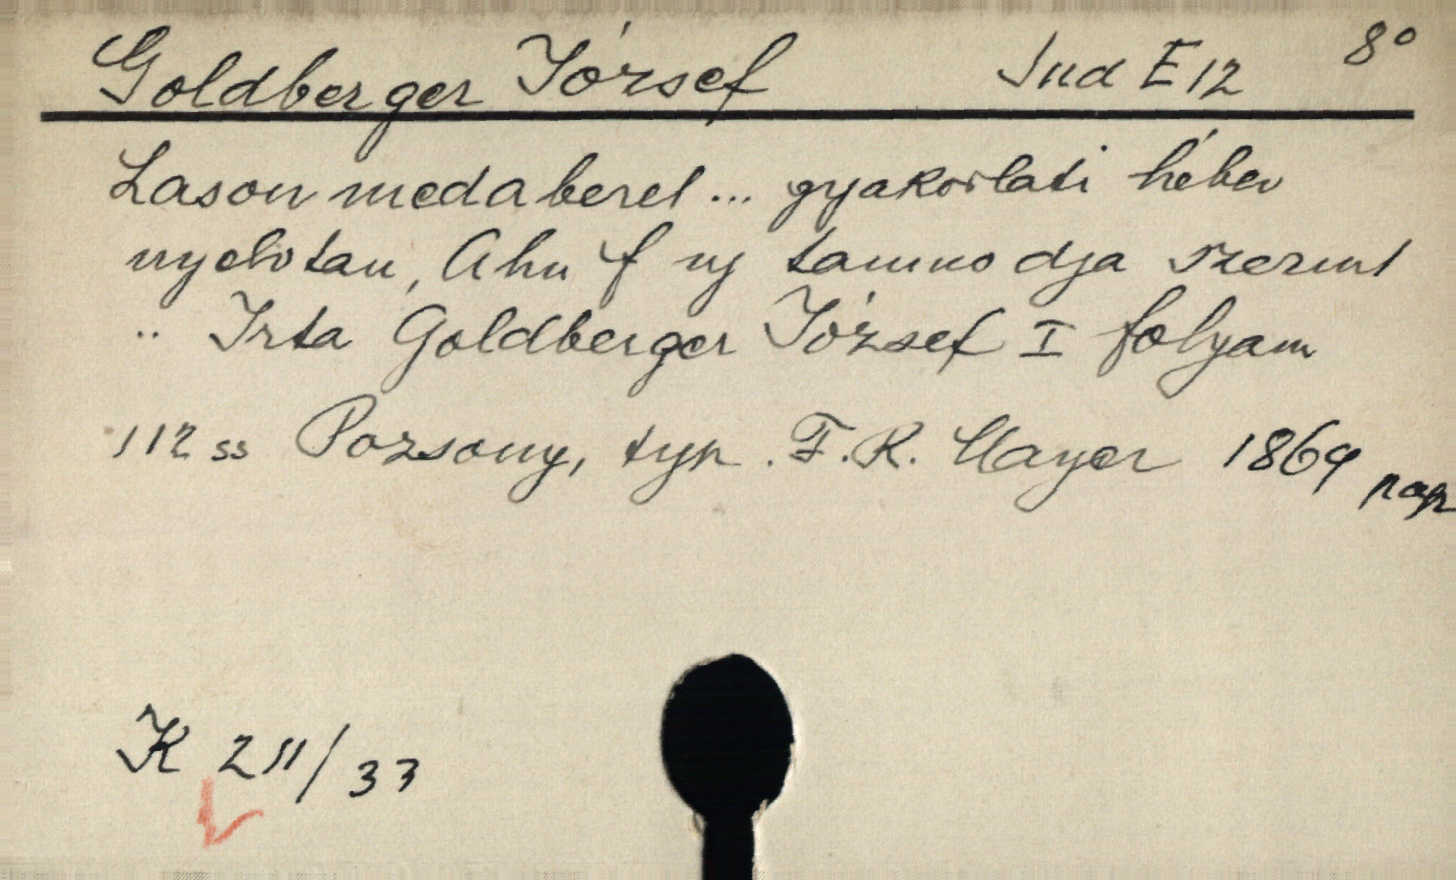 Goldberger József Jud E 12 8°
Lason medaberet ... gyakorlati héber
nyelvtan, Ahn F uj tanmodja szerint
.. Irta Goldberger József I folyam
112 ss Pozsony, typ. F. R. Mayer 1869 pap
K 211/33